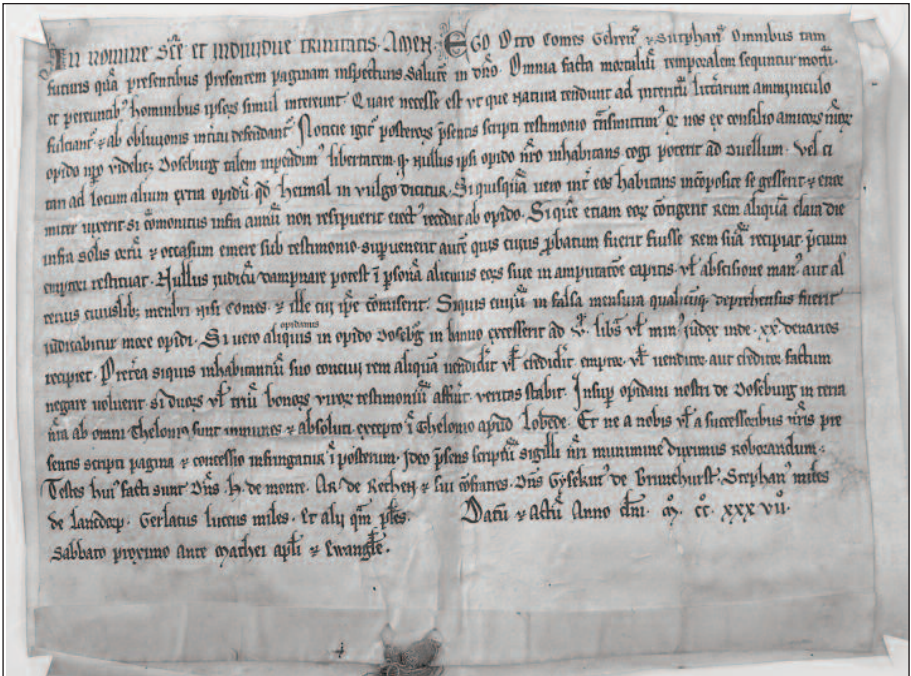 In nomine Sce et individue trinitatis. Amen. Ego Otto Comes Gelren et Sutphan Omnibus tam
futuris quā presentibus presentem paginam inspecturis salutē in dno. Omnia facta mortaliū temporalem sequuntur motū.
et pereuntibȝ hominibus ipsos simul intereunt. Quare necesse est ut que natura tendunt ad interitū litterarum amminiculo
fulciant et ab oblivionis iniuria defendant. Noticie igit posteror psentis scripti testimonio tnsmittim qd nos ex consilio amicorū nror
opido nro videlicȝ Doseburg talem inpendim libertatem. qd Nullus ipsi opido nro inhabitans cogi poterit ad duellum. vel ci
tari ad locum alium extra opidū qd heimal in vulgo dicitur. Si quisquā vero int eos habitans incōposite se gesserit et
viverit si cōmonitus infra annū non resipuerit eiect recedat ab opido. Si quē etiam eor cōtigerit rem aliquā clara die
infra solis ortū et occasum emere sub testimonio. supvenerit autē quis cuius pbatum fuerit fuisse rem suā recipiat. pcium
emptori restituat. Nullus iudicū dampnare potest ī psonā alicuius eor sive in amputatōe capitis. vl abscisione man aut al
terius cuiuslibȝ menbri nisi comes. et ille cui ipe cōmiserit. Siquis in falsa mensura qualicūqȝ deprehensus fuerit
iudicabitur more opidi. Si vero aliquis opidanus in opido Dosebg in banno excesserit ad v. libs vl min iudex inde. xx. denarios
recipiet. Pretea siquis inhabitantiū suo concivi rem aliquā vendidit vl credidit. emptor. vl venditor aut creditor factum
negare voluerit. si duor vl triū bonor viror testimoniū affuit. veritas stabit. Insup opidani nostri de Doseburg in terra
nra ab omni Thelonio sunt inmunes et absoluti. excepto ī Thelonio apud Lobede. Et ne a nobis vl a successoribus nris pre
sentis scripti pagina et concessio infringatur ī posterum. Ideo psens scriptū sigilli nri munimine duximus roborandum.
Testes hui facti sunt Dns. H. de monte. Ar de Rechen et sui cōfratres. Dns Gysekin de Brunchurst. Stephan miles
de landorp. Gerlacus luceus miles. Et alii qm plres. Datū et Actū Anno dni. M. CC. XXX VII.
Sabbato proximo ante Mathei apli et Ewangle.